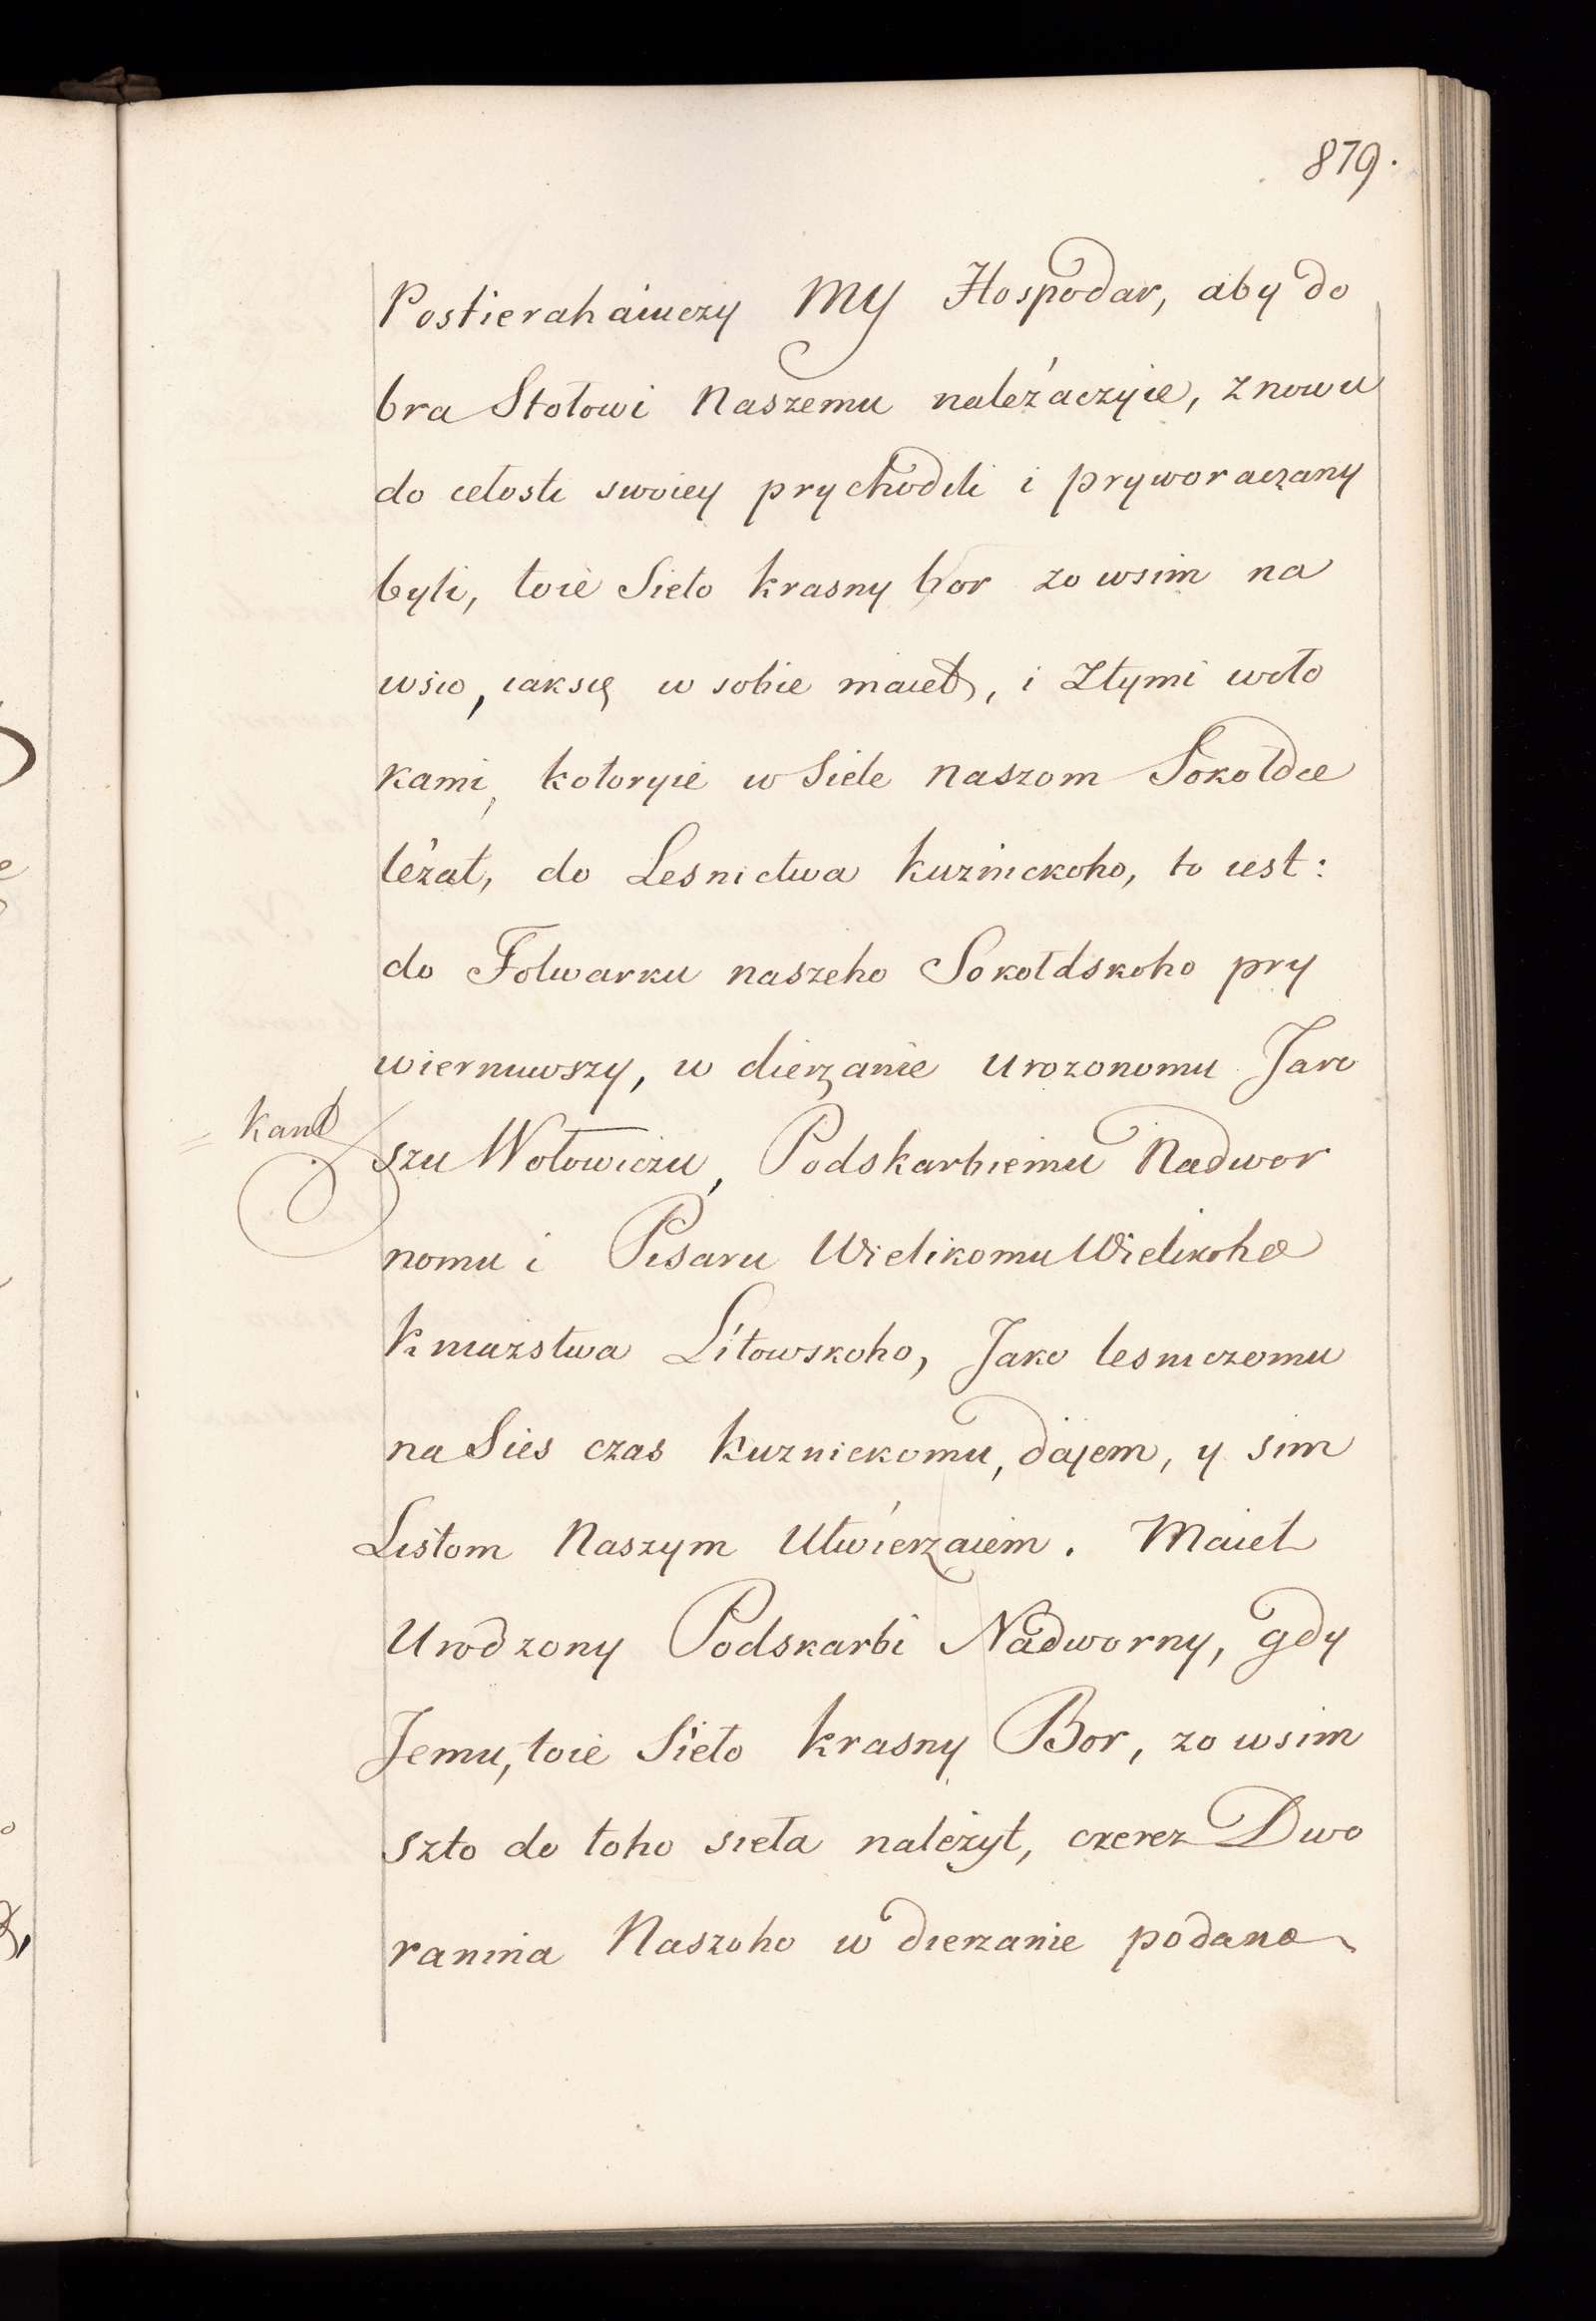 879.
Postierahaiuczy My Hospodar, aby do
bra Stołowi Naszemu належaczyie, znowu
do cełosti swoiey prychodili i pryworaczany
byli, toie Sieło Krasny bor zo wsim na
wsio, iaksię w sobie maiet, i Ztymi woło
kami, kotoryie w Siele Naszom Sokołdce
leżat, do Lesnictwa Kuznickoho, to iest:
do Folwarku naszeho Sokołdskoho pry
wiernuwszy, w dierzanie Urozonomu Jaro
Kand
szu Wołowiczu, Podskarbiemu Nadwor
nomu i Pisaru Wielikomu Wielikoho
Kniazstwa Litowskoho, Jako lesniczomu
na Sies czas Kuznickomu, dajem, y sim
Listom Naszym Utwierzaiem. Maiet
Urodzony Podskarbi Nadworny, gdy
Jemu, toie Sieło Krasny Bor, zo wsim
szto do toho sieła należyt, czerez Dwo
ranina Naszoho w dierzanie podano